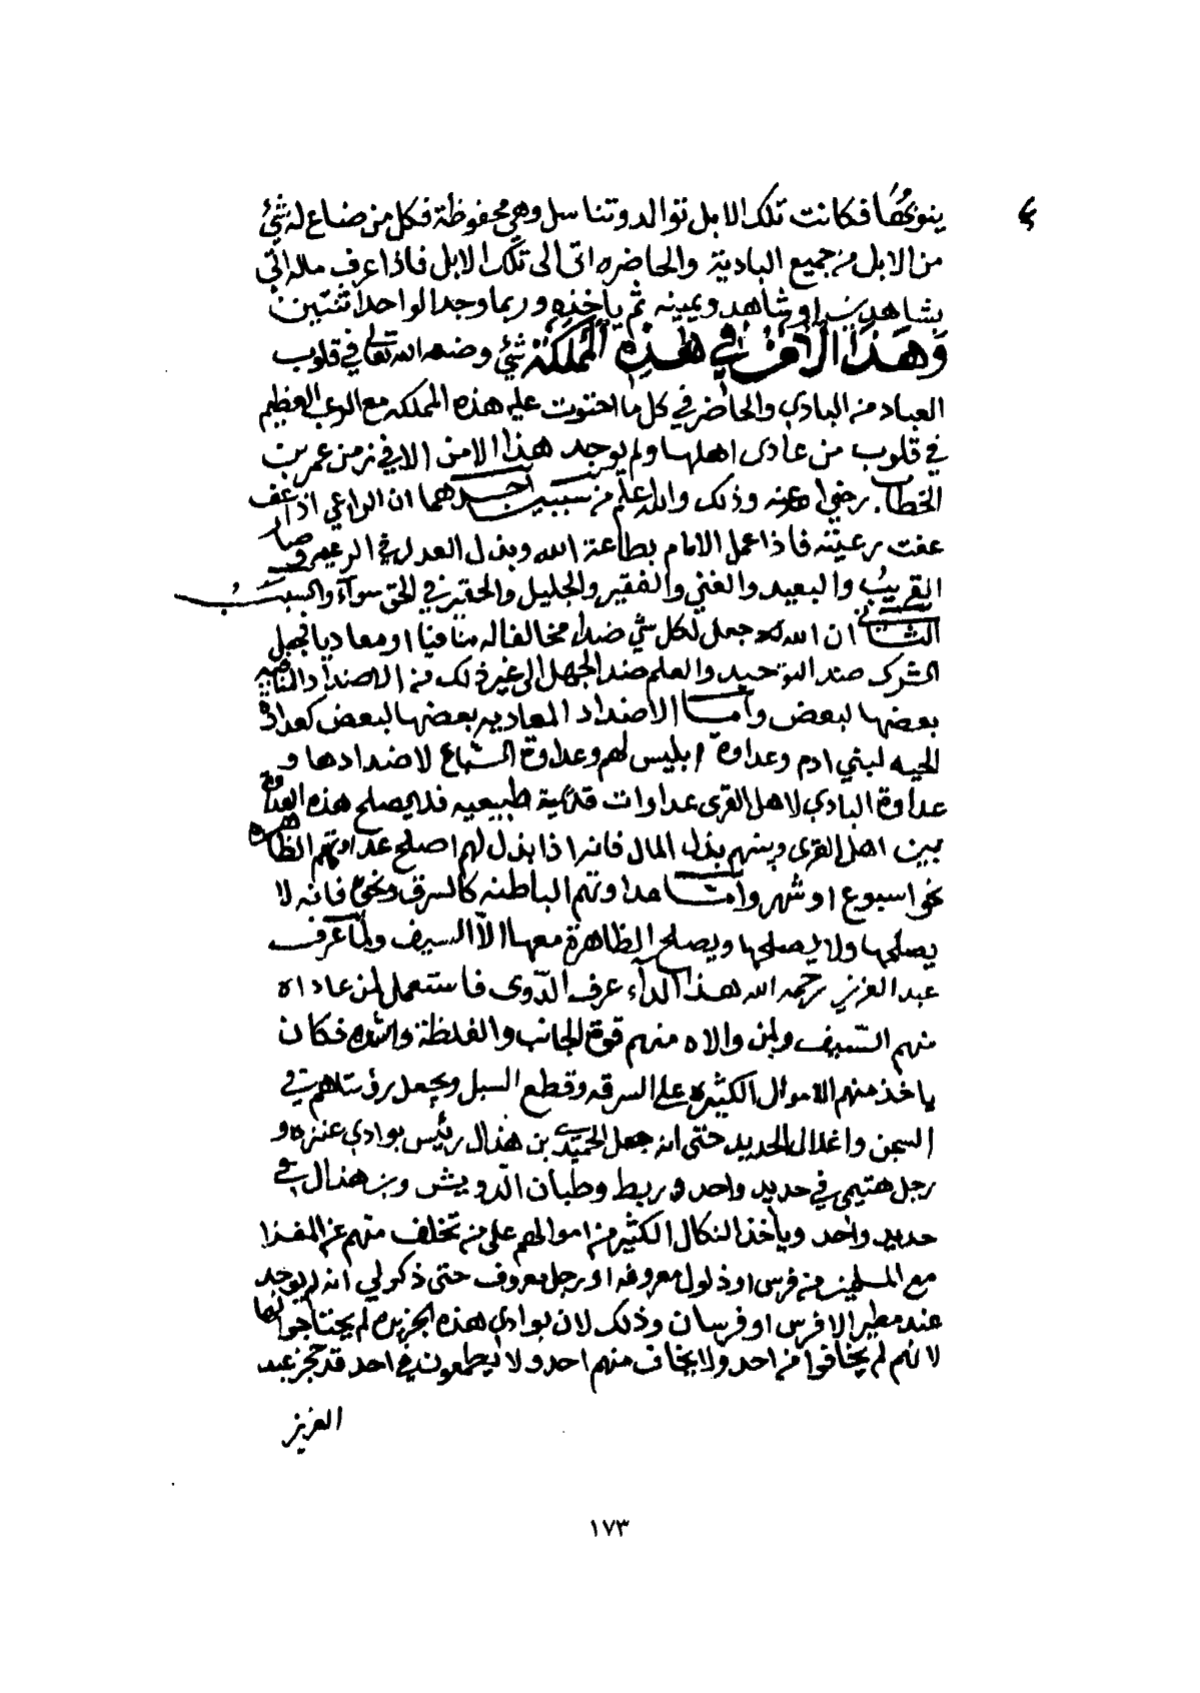 ينوبها فكانت تلك الابل توالد وتناسل وهي محفوظة فكل من ضاع له شئ
من الابل من جميع البادية والحاضره اتى الى تلك الابل فاذا عرف ماله اتى
بشاهدين او شاهد ويمينه ثم ياخذه وربما وجد الواحد اثنتين
وهذا الامن في هذه المملكة شئ وضعه الله تعالى في قلوب
العباد من البادي والحاضر في كل ما احتوت عليه هذه المملكه مع الرعب العظيم
في قلوب من عادى اهلها ولم يوجد هذا الامن الا في زمن عمر بن
الخطاب رضي الله عنه وذلك والله اعلم من سببين احدهما ان الراعي اذا عف
عفت رعيته فاذا عمل الامام بطاعة الله وبذل العدل في الرعيه وصار
القريب والبعيد والغني والفقير والجليل والحقير في الحق سوآء والسبب
الثاني ان الله جعل لكل شئ ضدا مخالفا له منافيا او معاديا فجعل
الشرك ضد التوحيد والعلم ضد الجهل الى غير ذلك من الاضداد المنافيه
بعضها لبعض وأما الاضداد المعاديه بعضها لبعض كعداوة
الحيه لبني ادم وعداوة ابليس لهم وعداوة السباع لاضدادها و
عداوة البادي لاهل القرى عداوات قديمة طبيعيه فلا يصلح هذه العداوة
بين اهل القرى وبينهم بذل المال فانه اذا بذل لهم اصلح عداوتهم الظاهره
نحو اسبوع او شهر وأمّا عداوتهم الباطنه كالسرق ونحوه فانه لا
يصلحها ولا يصلحها ويصلح الظاهرة معها الاّ السيف ولمّا عرف
عبد العزيز رحمه الله هذا الدآء عرف الدّوى فاستعمل لمن عاداه
منهم السّيف ولمن والاه منهم قوة الجانب والغلظة والشده فكان
ياخذ منهم الاموال الكثيره على السرقه وقطع السبل ويجعل رؤسآهم في
السجن واغلال الحديد حتى انه جعل الحميدي بن هذال رئيس بوادي عنزه و
رجل هتيمي في حديد واحد وربط وطبان الدّويش وبن هذال في
حديد واحد وياخذ النكال الكثير من اموالهم على من تخلف منهم عن المغزا
مع المسلمين من فرس او ذلول معروفه او رجل معروف حتى ذكر لي انه لم يوجد
عند مطير الا فرس او فرسان وذلك لان بوادي هذه الجزيره لم يحتاجوا لها
لانهم لم يخافوا من احد ولا يخاف منهم احد ولا يطمعون في احد قد حجز عبد
العزيز
١٧٣